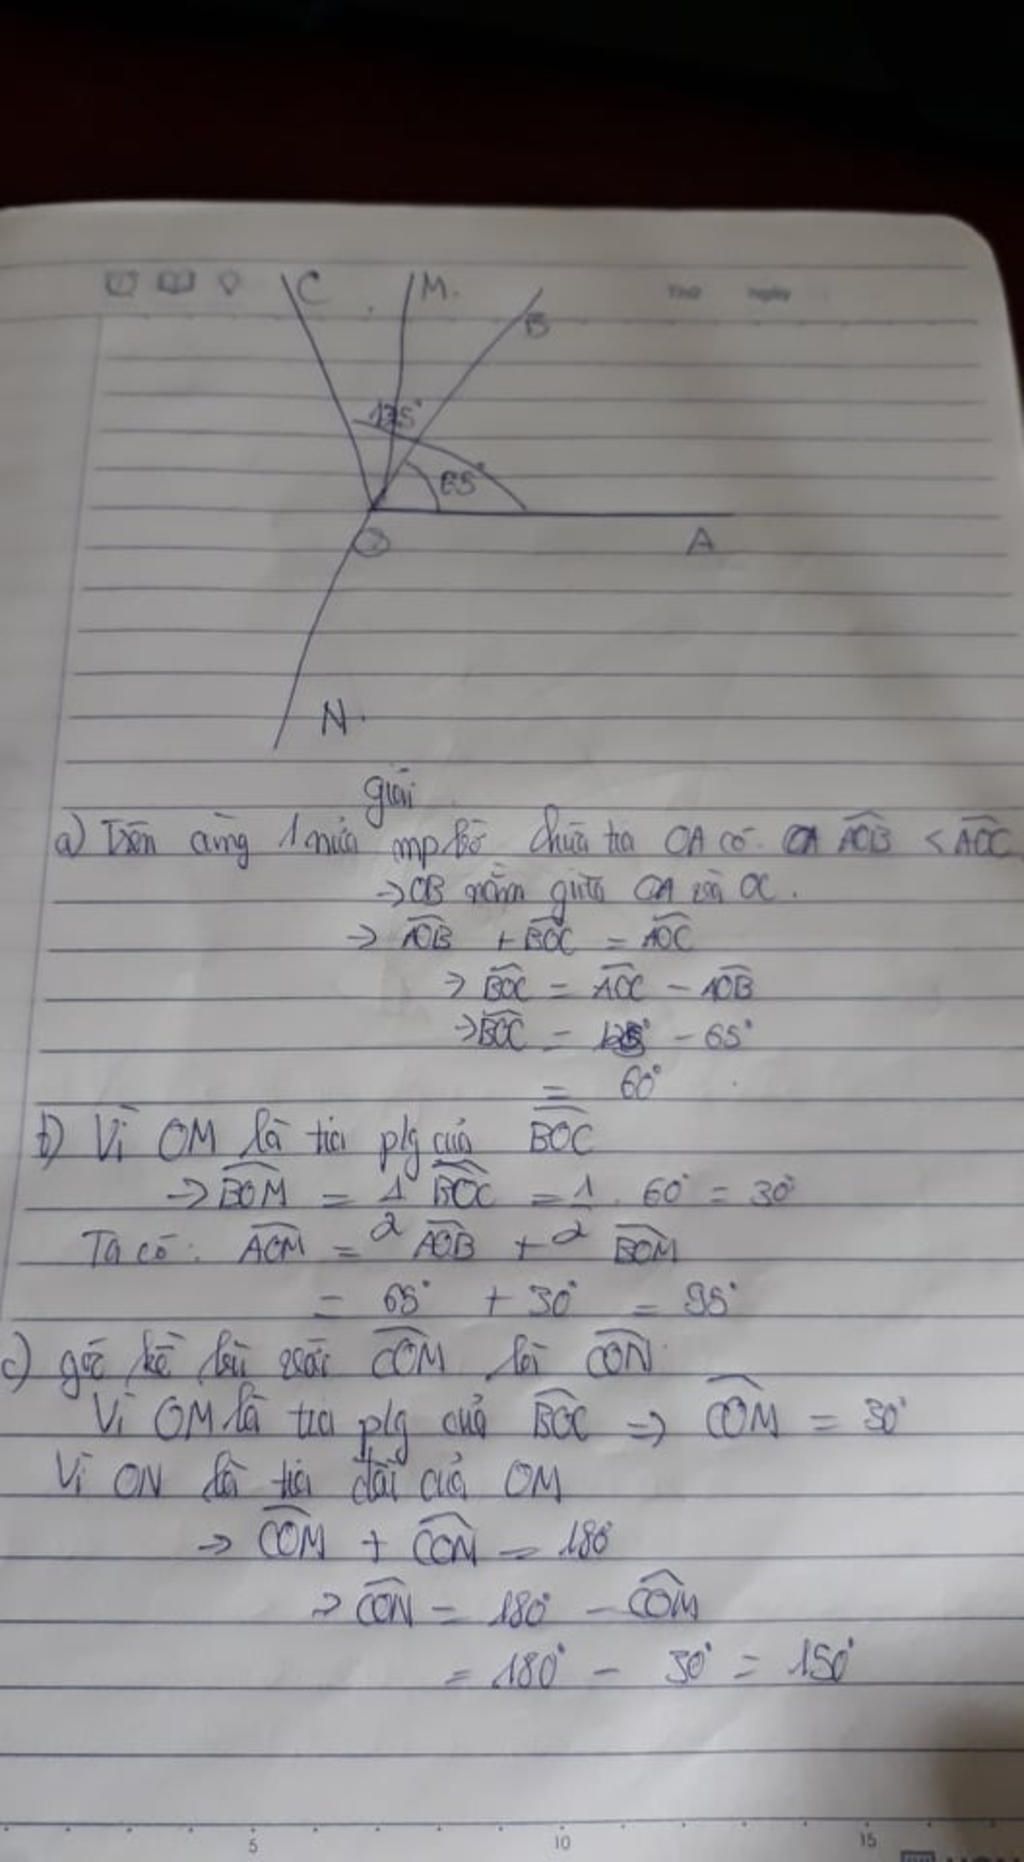 Thứ ngày
C M. B
125°
65°
O A
N.
giải
a) Trên cùng 1 nửa mp bờ chứa tia OA có AOB < AOC
→ OB nằm giữa OA và OC.
→ AOB + BOC = AOC
→ BOC = AOC - AOB
→ BOC = 125° - 65°
= 60°
b) Vì OM là tia plg của BOC
→ BOM = 1/2 BOC = 1/2 . 60° = 30°
Ta có: AOM = AOB + BOM
= 65° + 30° = 95°
c) góc kề bù với COM là CON
Vì OM là tia plg của BOC ⇒ COM = 30°
Vì ON là tia đối của OM
→ COM + CON = 180°
⇒ CON = 180° - COM
= 180° - 30° = 150°
5 10 15